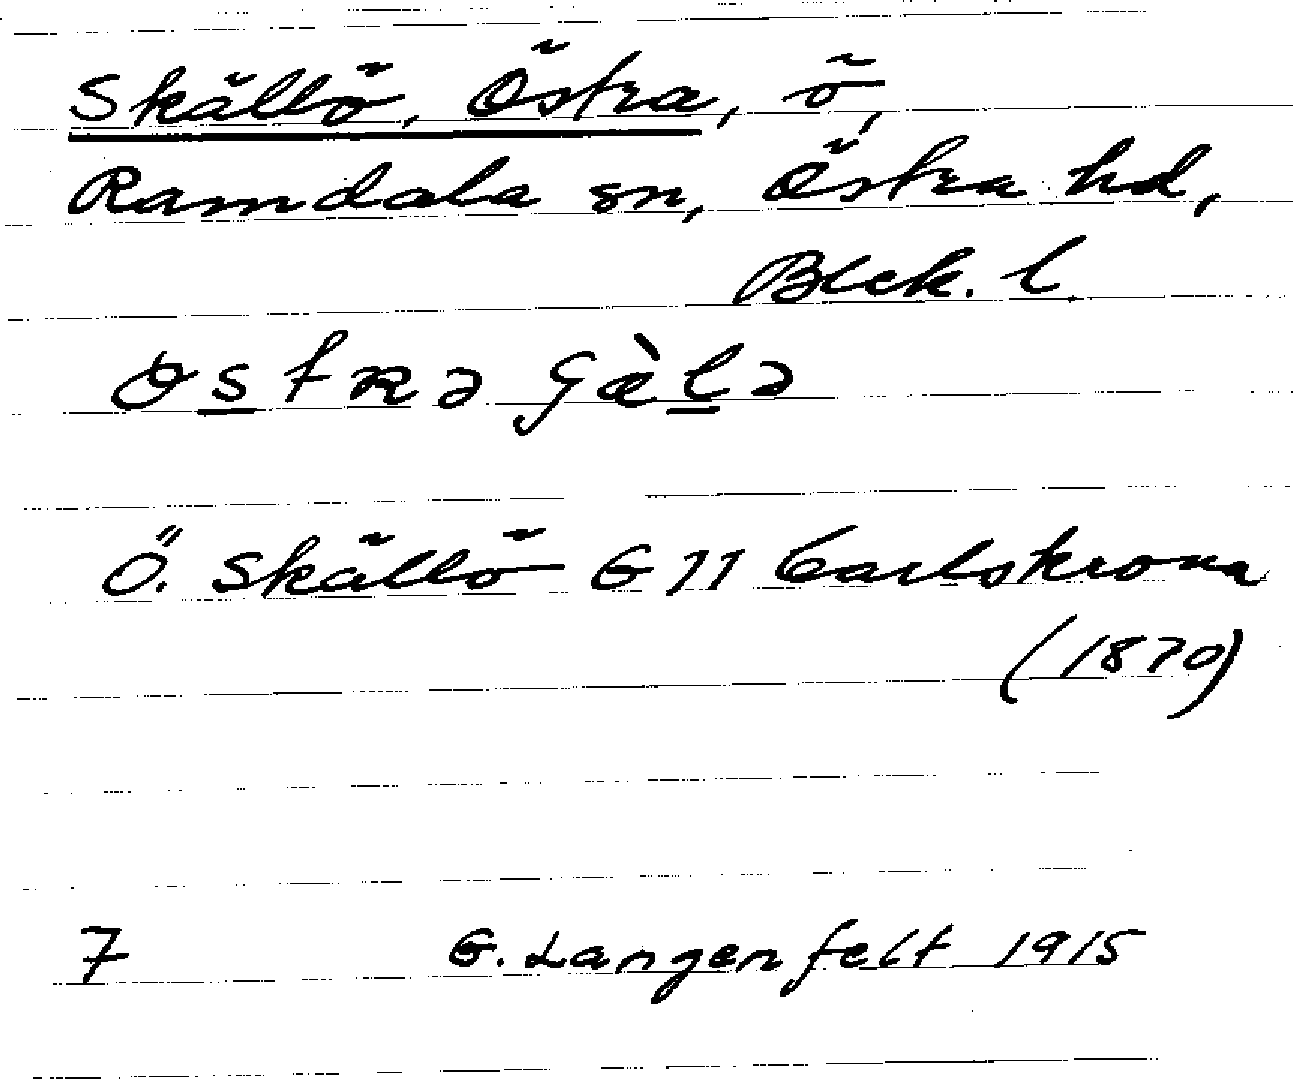 Skällö, Östra, ö,
Ramdala sn, Östra hd,
Blek. l.
Ö. Skällö G 11 Carlskrona
(1870)
7 G. Langenfelt 1915